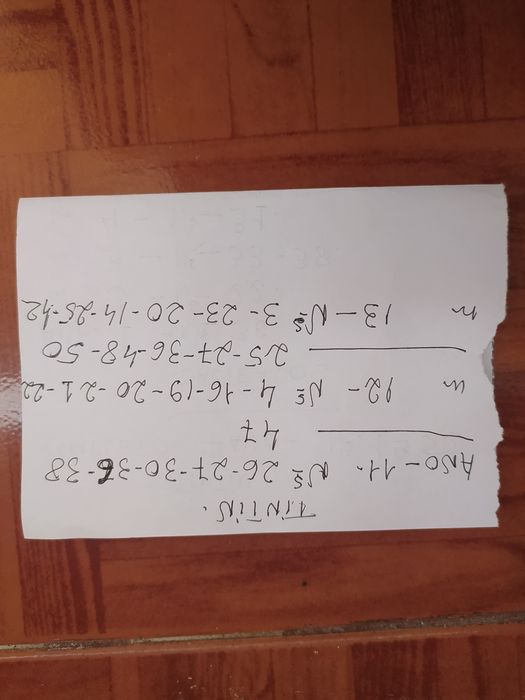 TiNTiN.
ANO - 11. Nºs 26-27-30-36-38
47
" 12 - Nºs 4-16-19-20-21-22
25-27-36-48-50
" 13 - Nºs 3-23-20-14-25-42